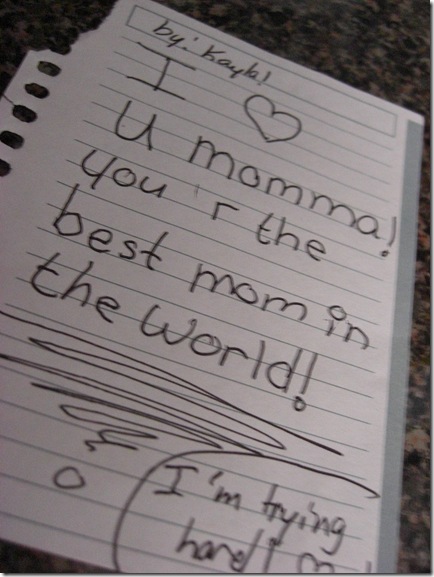 by: Kayla!
I ♡
U momma!
you 'r the
best mom in
the world!
I'm trying
hard! ♡